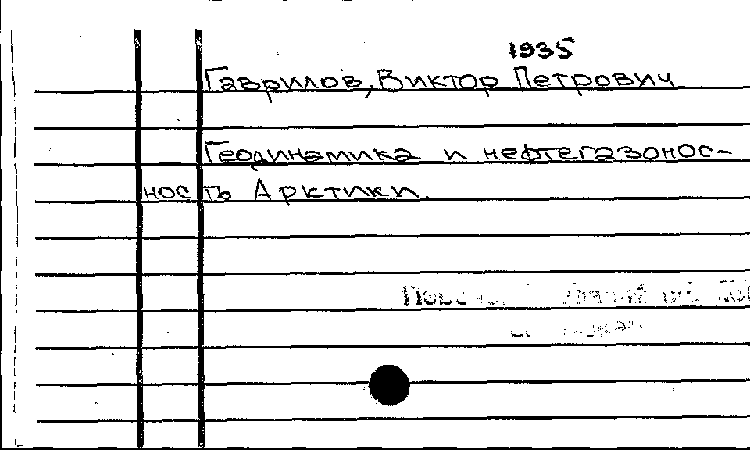 1935
Гаврилов, Виктор Петрович
Геодинамика и нефтегазонос-
ность Арктики.